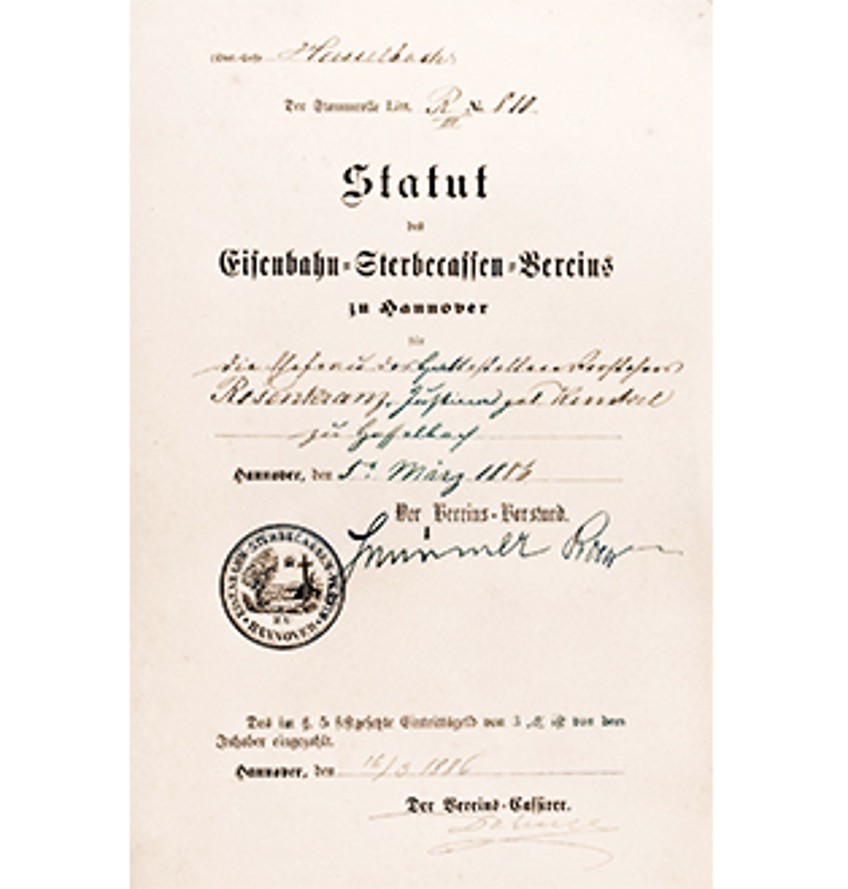 Hasselbach
Der Stammrolle Litr. R № 810
III
Statut
des
Eisenbahn-Sterbecassen-Vereins
zu Hannover
für
die Ehefrau des Haltestellenvorstehers
Rosenkranz, Justina geb.
zu Hasselbach
Hannover, den 5t. März 1886
Der Vereins-Vorstand.
EISENBAHN-STERBECASSEN-VEREIN
HANNOVER
Das im §. 5 festgesetzte Eintrittsgeld von 3 ℳ ist von dem
Inhaber eingezahlt.
Hannover, den 16/3 1886
Der Vereins-Cassirer.